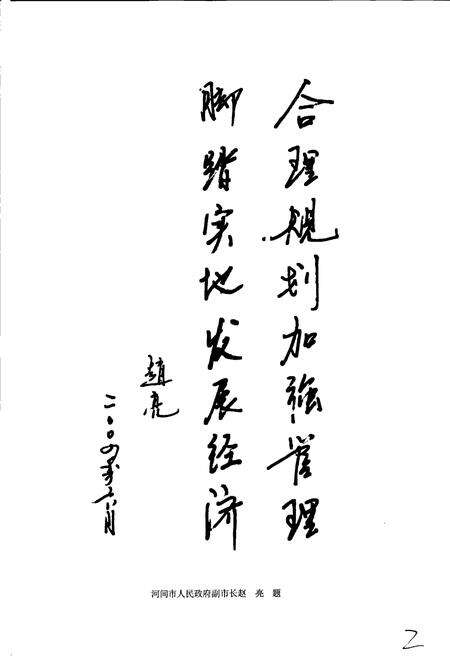 合理规划加强管理
脚踏实地发展经济
趙亮
二〇〇四年六月
河间市人民政府副市长赵 亮 题
2